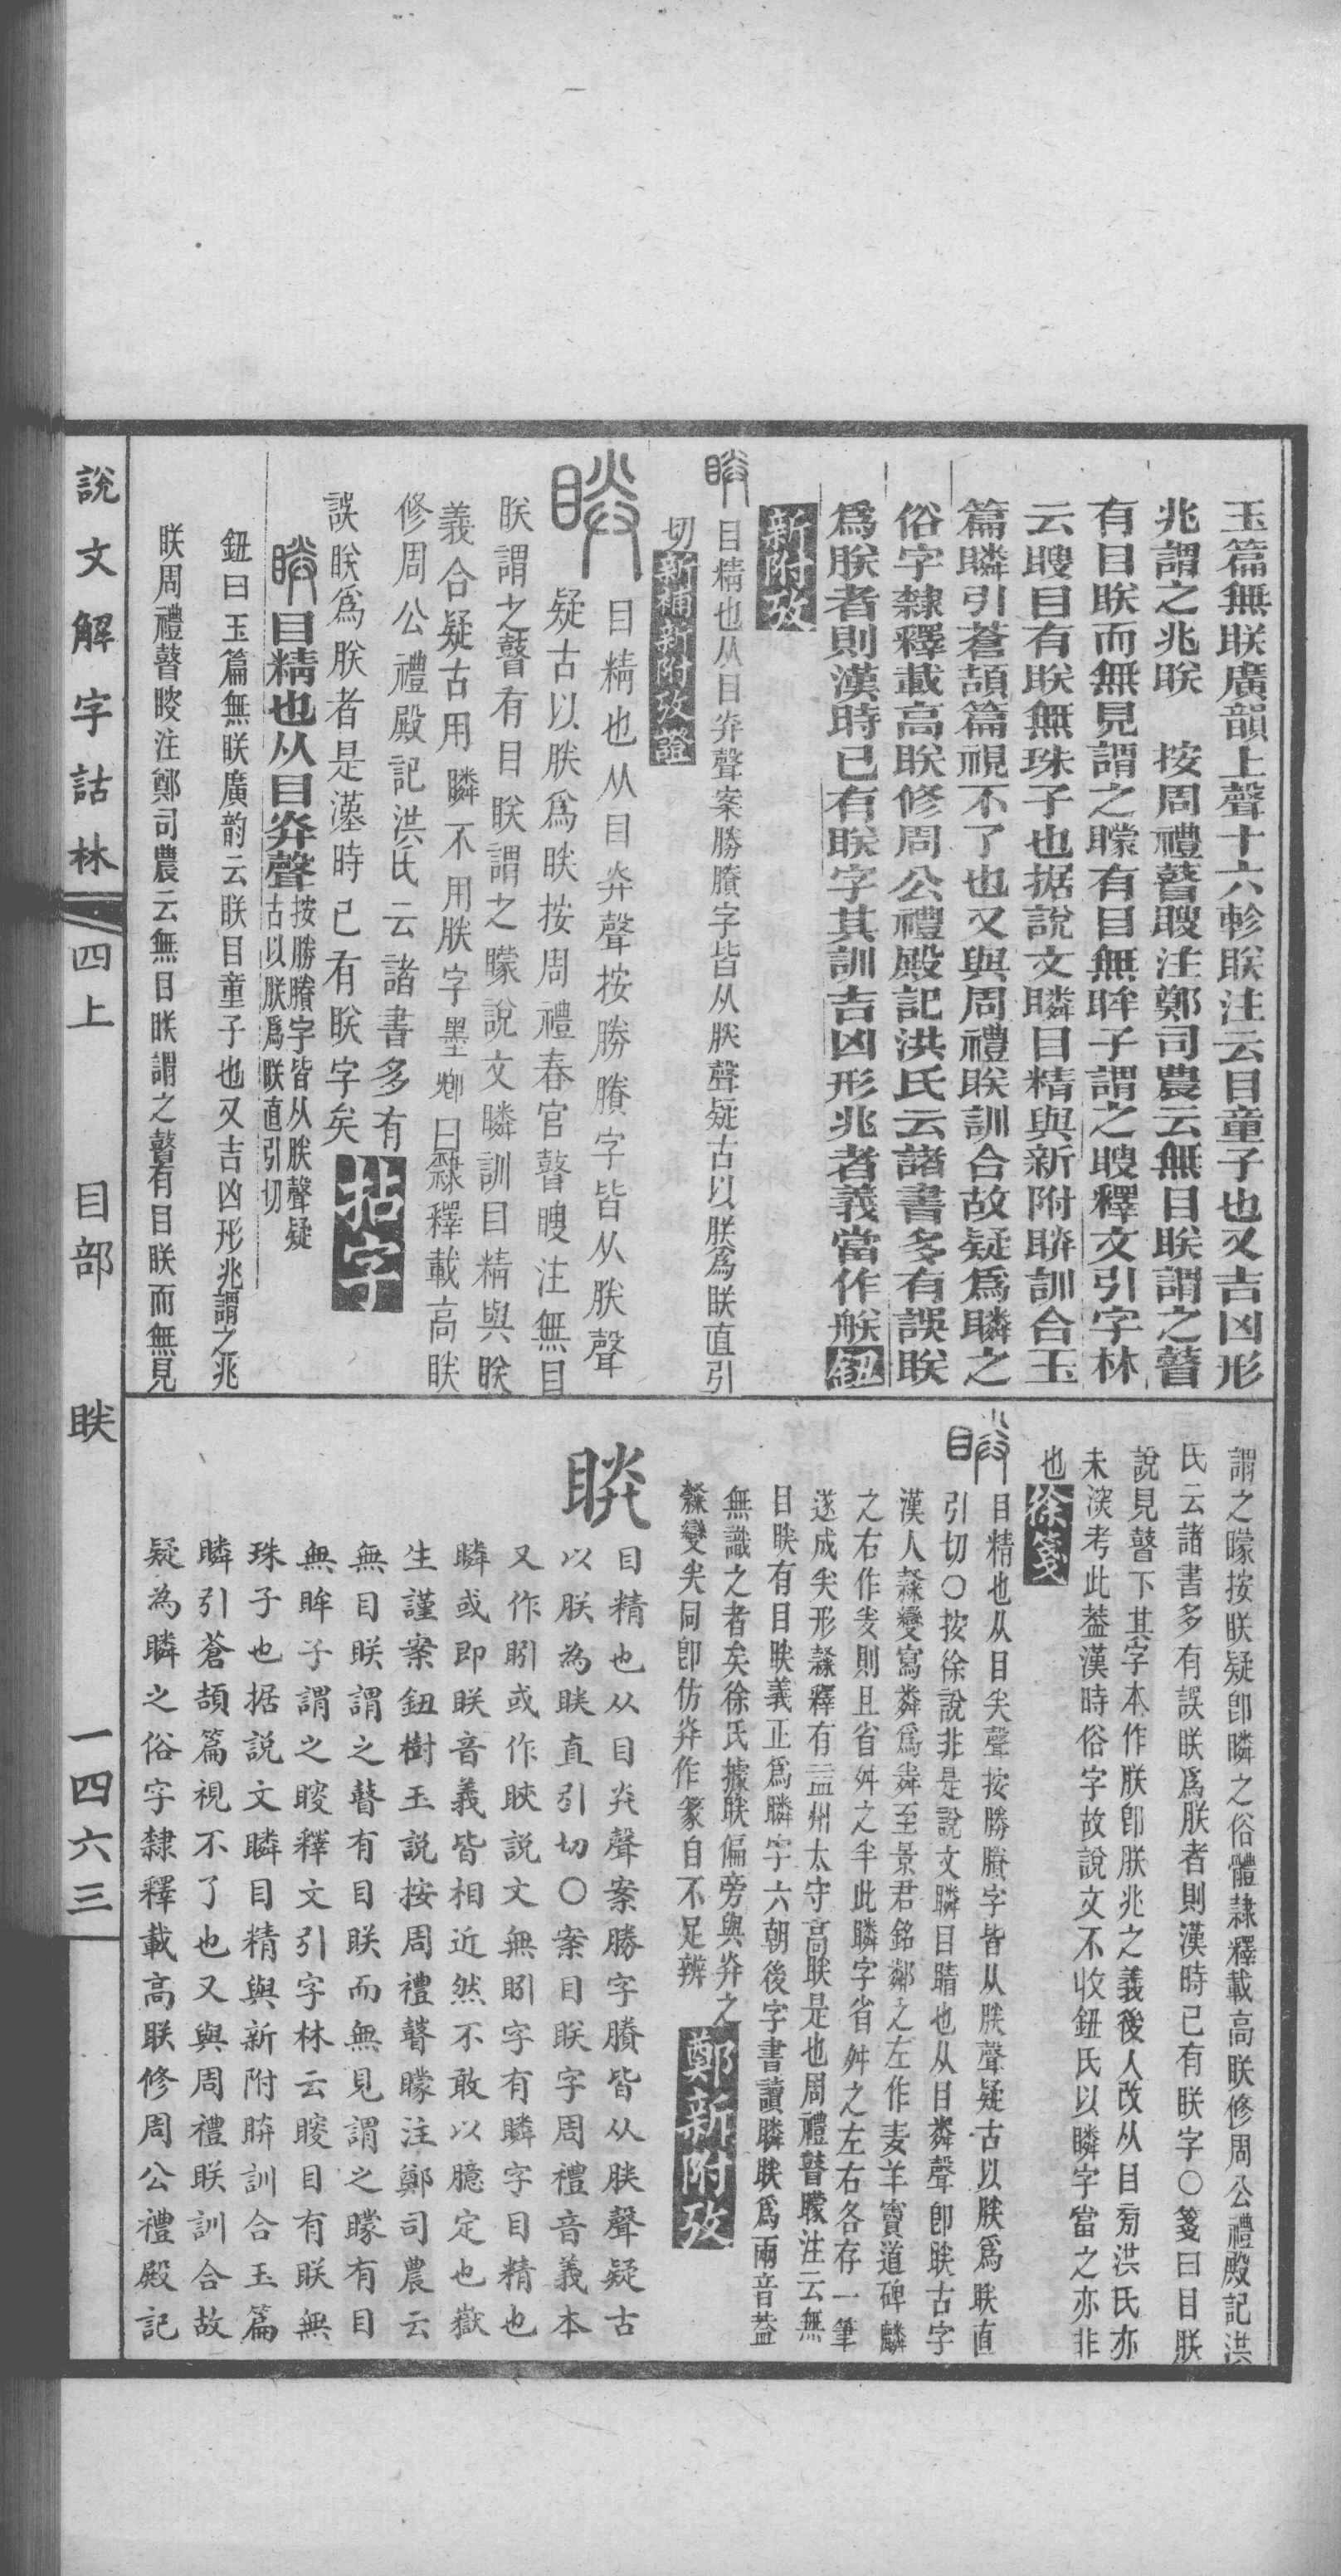 玉篇無䀼廣韻上聲十六軫䀼注云目童子也又吉凶形
兆謂之兆䀼　按周禮瞽瞍注鄭司農云無目䀼謂之瞽
有目䀼而無見謂之矇有目無眸子謂之瞍釋文引字林
云瞍目有䀼無珠子也据說文瞵目精與新附䀼訓合玉
篇瞵引蒼頡篇視不了也又與周禮䀼訓合故疑爲瞵之
俗字隸釋載高䀼修周公禮殿記洪氏云諸書多有誤䀼
爲朕者則漢時已有䀼字其訓吉凶形兆者義當作朕鈕
新附攷
目精也从目灷聲案勝賸字皆从朕聲疑古以朕爲䀼直引
切新補新附攷證
目精也从目灷聲按勝賸字皆从朕聲
疑古以朕爲䀼按周禮春官瞽瞍注無目
䀼謂之瞽有目䀼謂之矇說文瞵訓目精與䀼
義合疑古用瞵不用朕字墨卿曰隸釋載高䀼
修周公禮殿記洪氏云諸書多有
誤䀼爲朕者是漢時已有䀼字矣拈字
目精也从目灷聲按勝賸字皆从朕聲疑古以朕爲䀼直引切
鈕曰玉篇無䀼廣韵云䀼目童子也又吉凶形兆謂之兆
䀼周禮瞽瞍注鄭司農云無目䀼謂之瞽有目䀼而無見
謂之矇按䀼疑卽瞵之俗體隸釋載高䀼修周公禮殿記洪
氏云諸書多有誤䀼爲朕者則漢時已有䀼字○箋曰目䀼
說見瞽下其字本作朕卽朕兆之義後人改从目旁洪氏亦
未深考此葢漢時俗字故說文不收鈕氏以瞵字當之亦非
也徐箋
目精也从目灷聲按勝賸字皆从朕聲疑古以朕爲䀼直
引切○按徐說非是說文瞵目睛也从目粦聲卽䀼古字
漢人隸變寫粦爲䍿至景君銘鄰之左作麦羊竇道碑麟
之右作麦則且省舛之半此瞵字省舛之左右各存一筆
遂成灷形隸釋有益州太守高䀼是也周禮瞽矇注云無
目䀼有目䀼義正爲瞵字六朝後字書讀瞵䀼爲兩音葢
無識之者矣徐氏據䀼偏旁與灷之
隸變灷同卽仿灷作篆自不足辨鄭新附攷
䀼
目精也从目灷聲案勝字賸皆从朕聲疑古
以朕為䀼直引切○案目䀼字周禮音義本
又作眹或作䀹説文無眹字有瞵字目精也
瞵或即䀼音義皆相近然不敢以臆定也嶽
生謹案鈕樹玉説按周禮瞽矇注鄭司農云
無目䀼謂之瞽有目䀼而無見謂之矇有目
無眸子謂之瞍釋文引字林云瞍目有䀼無
珠子也据説文瞵目精與新附䀼訓合玉篇
瞵引蒼頡篇視不了也又與周禮䀼訓合故
疑為瞵之俗字隸釋載高䀼修周公禮殿記
說文解字詁林　四上　目部　䀼　一四六三